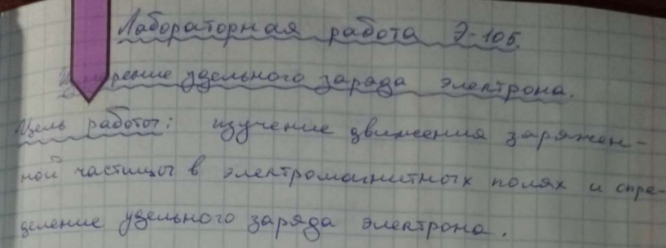 Лабораторная работа Э-105.
удельного заряда электрона.
Цель работы: изучение движения заряжен-
ной частицы в электромагнитных полях и опре-
деление удельного заряда электрона.